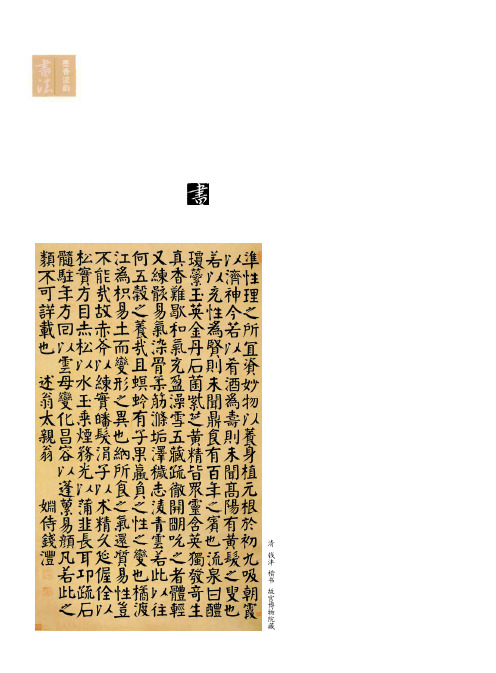 書法
書
準性理之所宜資妙物以養身植元根於初九吸朝霞
以濟神今若以肴酒為壽則未聞高陽有黃髮之叟也
若以充性為賢則未聞鼎食有百年之賓也流泉曰醴
瓊蘂玉英金丹石菌紫芝黃精皆眾靈含英獨發奇生
真香難歇和氣充盈澡雪五藏疏徹開明吮之者體輕
又練骸易氣染骨柔筋滌垢澤穢志凌青雲若此以往
何五穀之養哉且螟蛉有子果蠃負之性之變也橘渡
江為枳易土而變形之異也納所食之氣還質易性豈
不能哉故赤斧以練實皤髮涓子以朮精久延偓佺以
松實方目赤松以水玉乘煙務光以蒲韭長耳邛疏石
髓駐年方回以雲母變化昌容以蓬蔂易顏凡若此之
類不可詳載也 述翁太親翁 姻侍錢灃
清 钱沣 楷书 故宫博物院藏